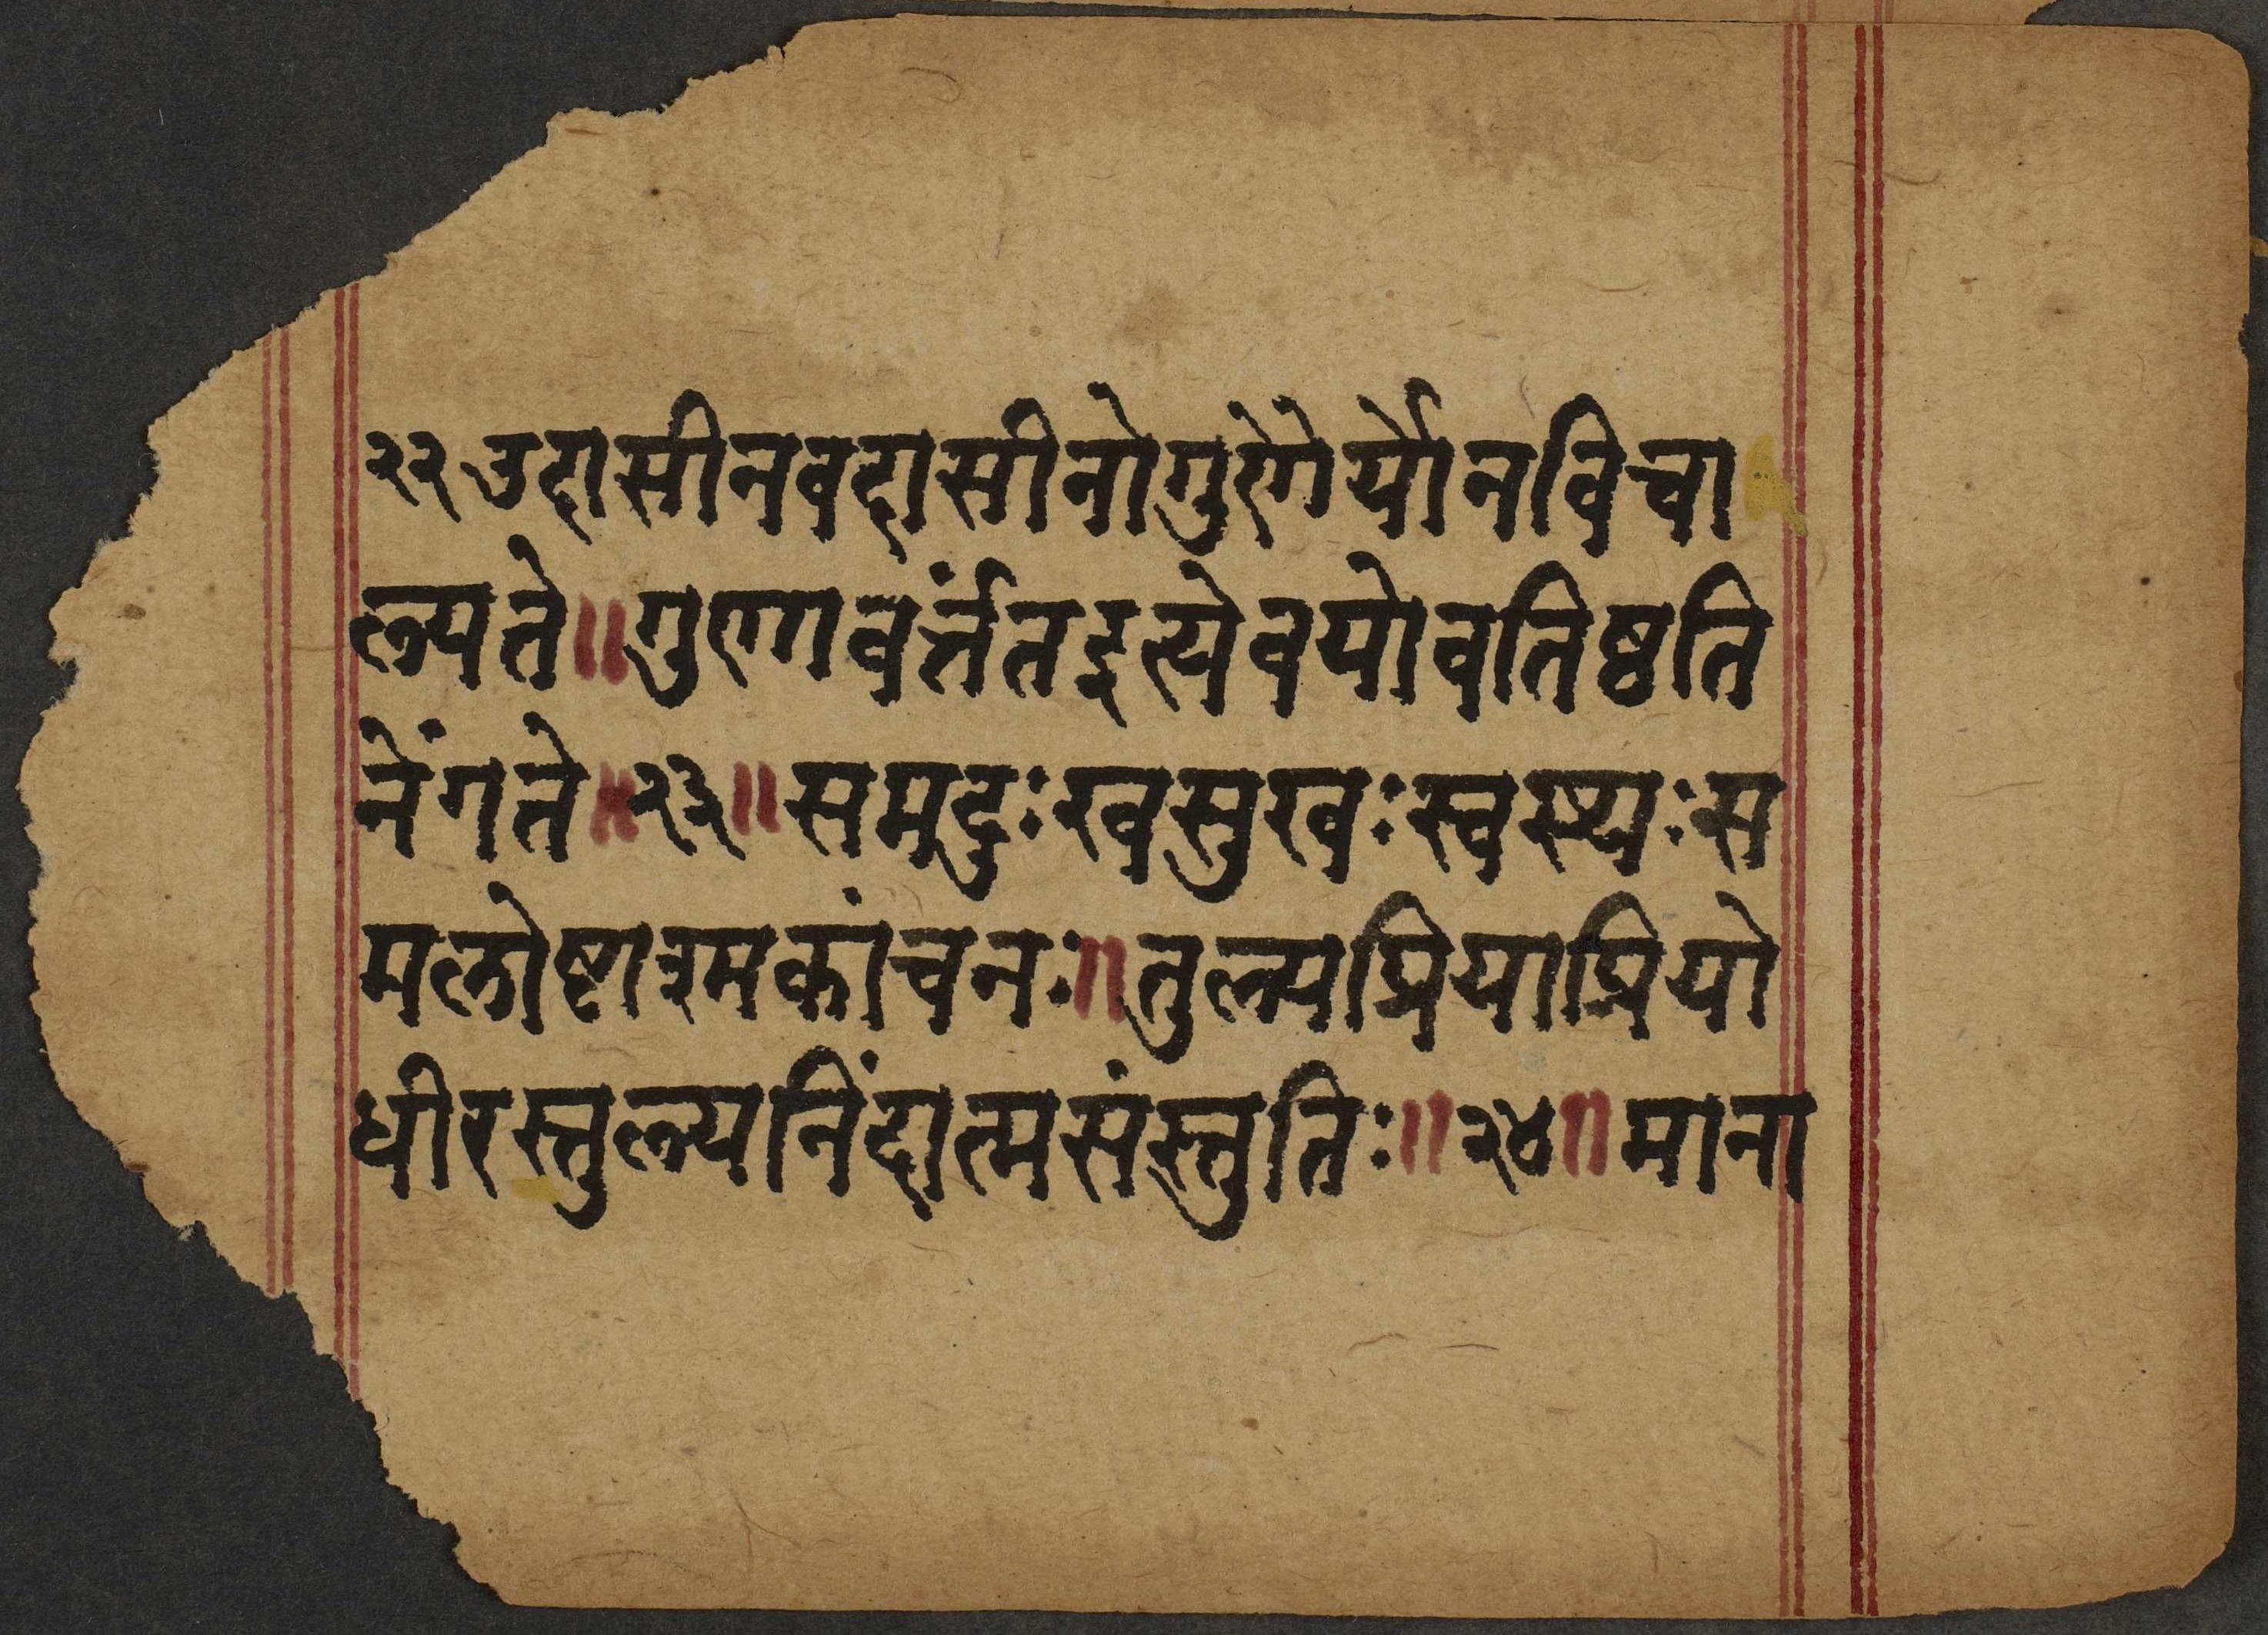 २२उदासीनवदासीनोगुणेर्योनविचा
ल्यते॥गुणावर्त्तंतइत्येवयोवतिष्ठति
नेंगते॥२३॥समदुःखसुखःस्वस्थःस
मलोष्टाश्मकांचनः॥तुल्यप्रियाप्रियो
धीरस्तुल्यनिंदात्मसंस्तुतिः॥२४॥माना